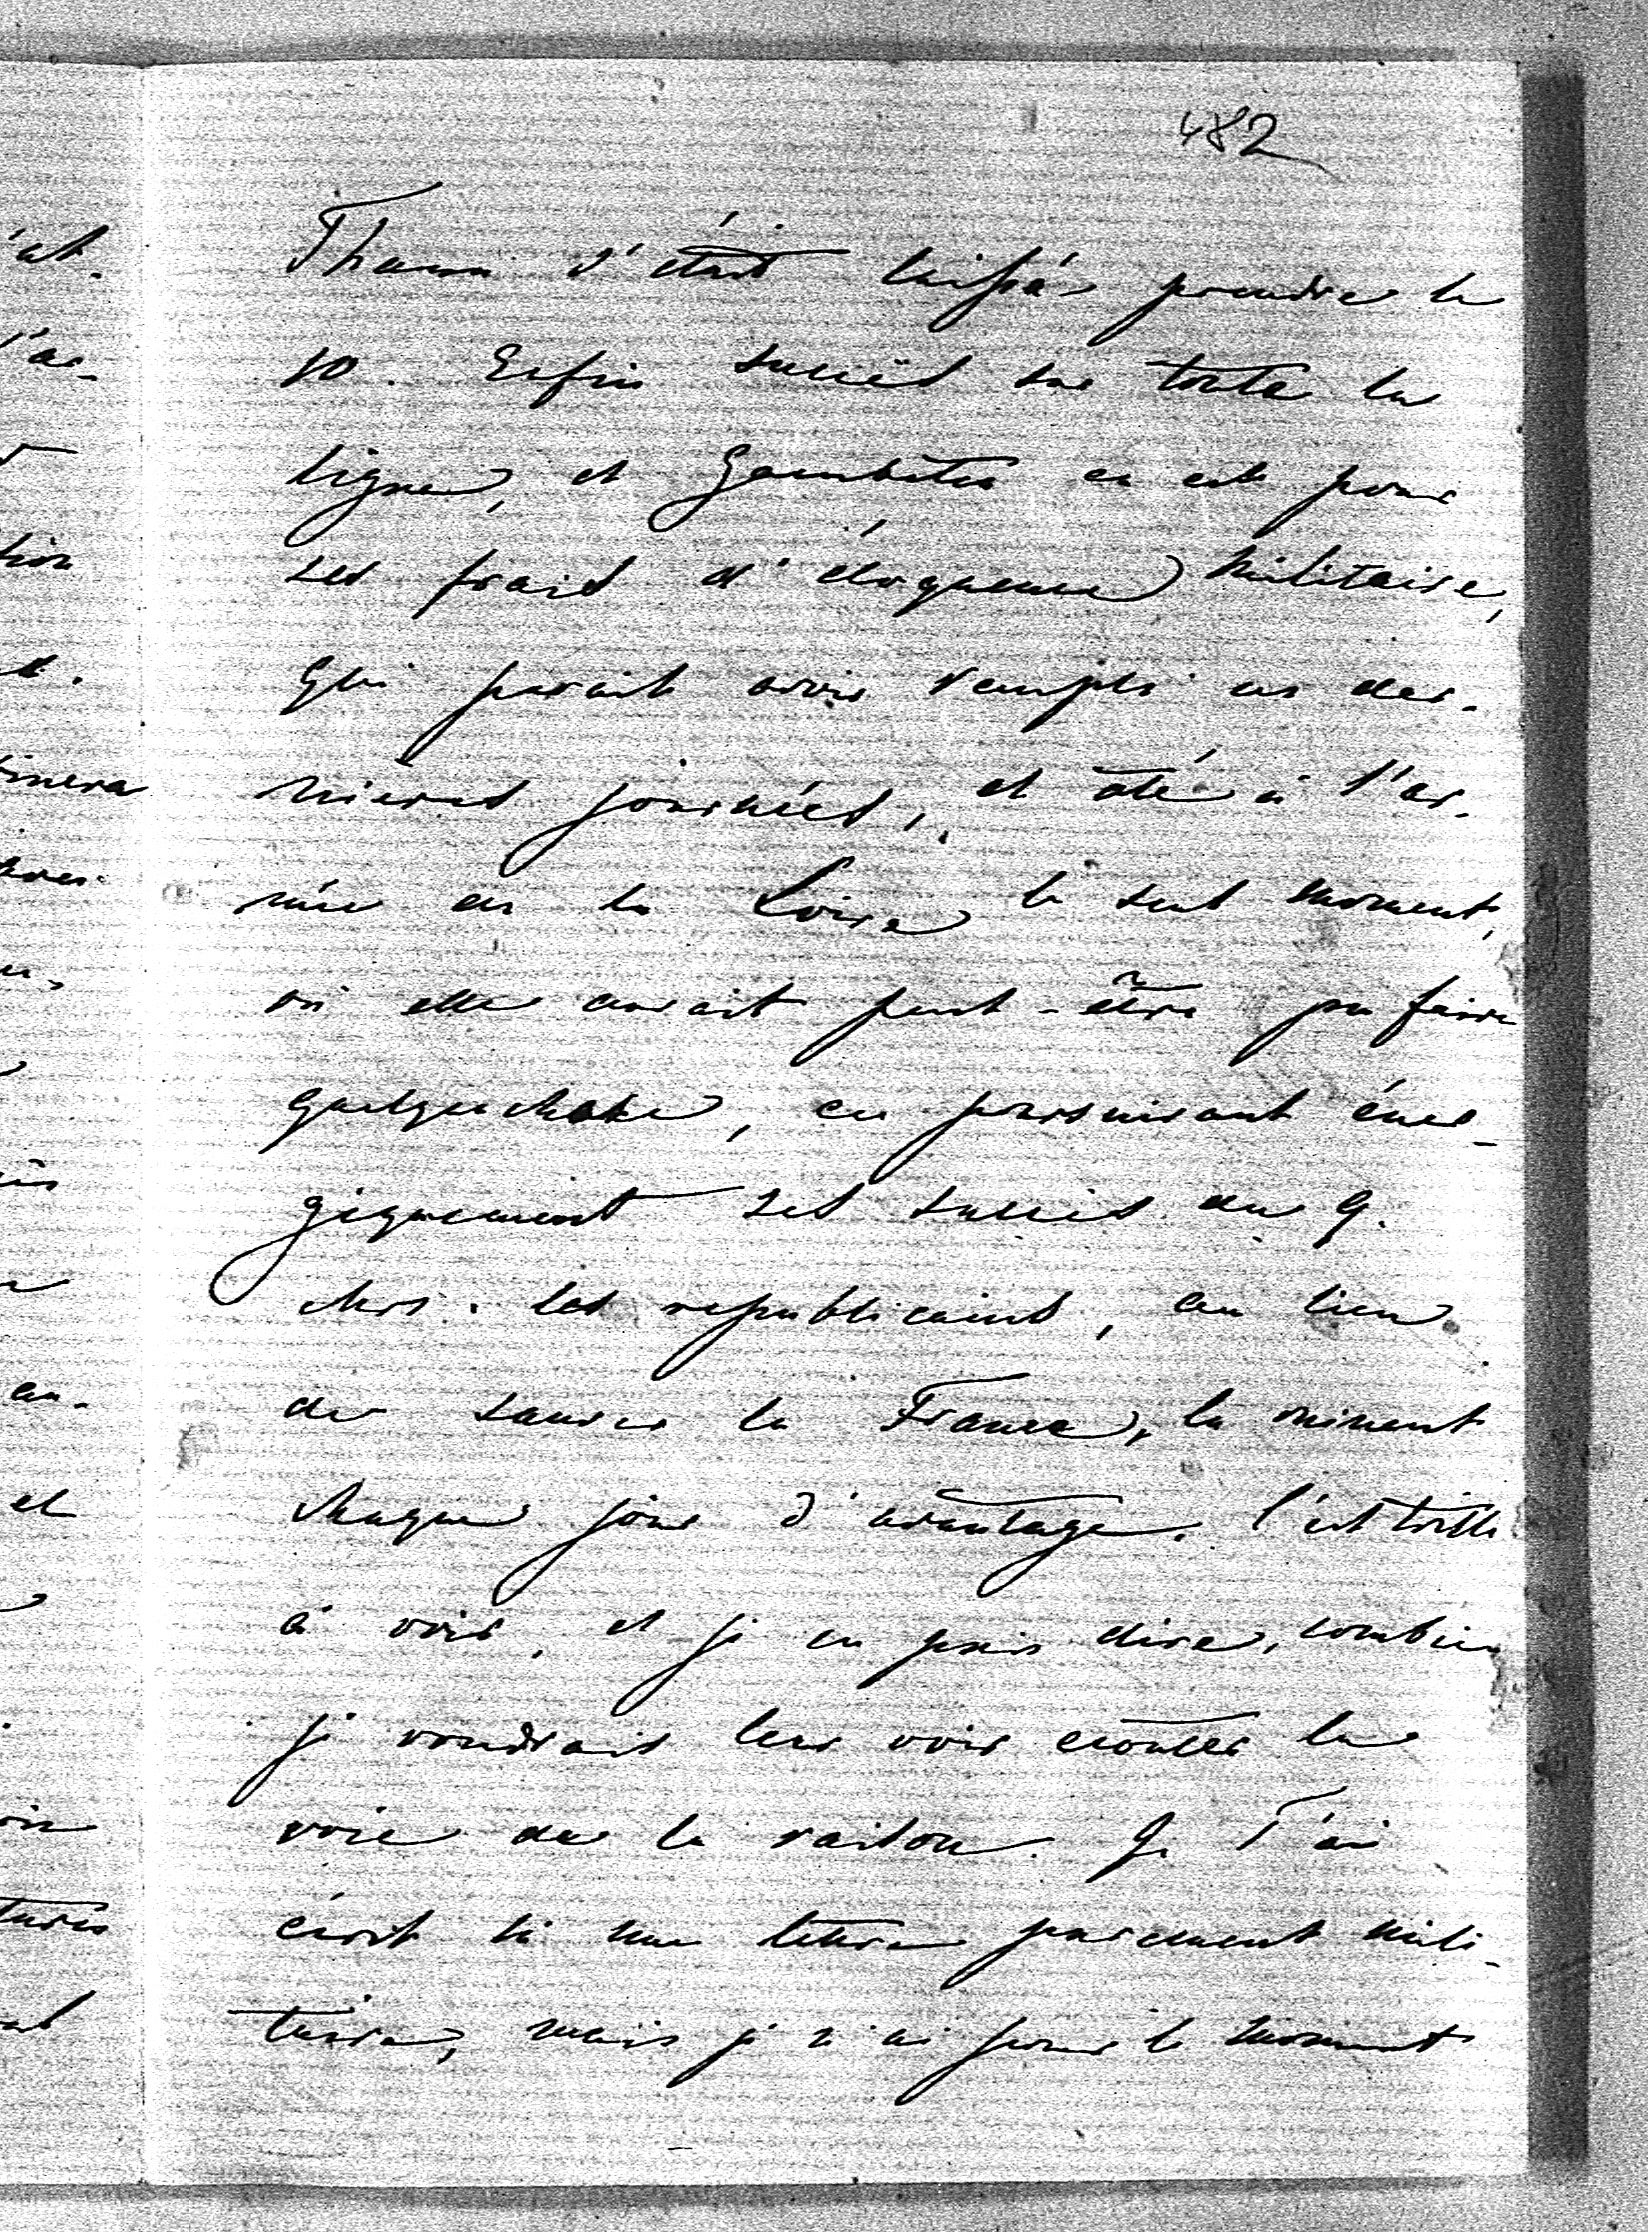 482
Thann s'était laissé prendre le
10. Enfin succès sur toute la
ligne, et Gambetta en est pour
ses frais d'éloquence militaire,
qui parait avoir rempli ces der-
nières journées, et oté à l'ar-
mée de la Loire le seul moment,
où elle aurait peut-être pu faire
quelquechose, en poursuivant éner-
giquement ses succès du 9.
chrs. les republicains, au lieu
de sauver la France, la ruinent
chaque jour d'avantage. C'est triste
à voir, et je ne puis dire, combien
je voudrais leur voir écouter la
voix de la raison. Je T'ai
écrit ici une lettre purement mili-
taire, mais je n'ai pour le moment